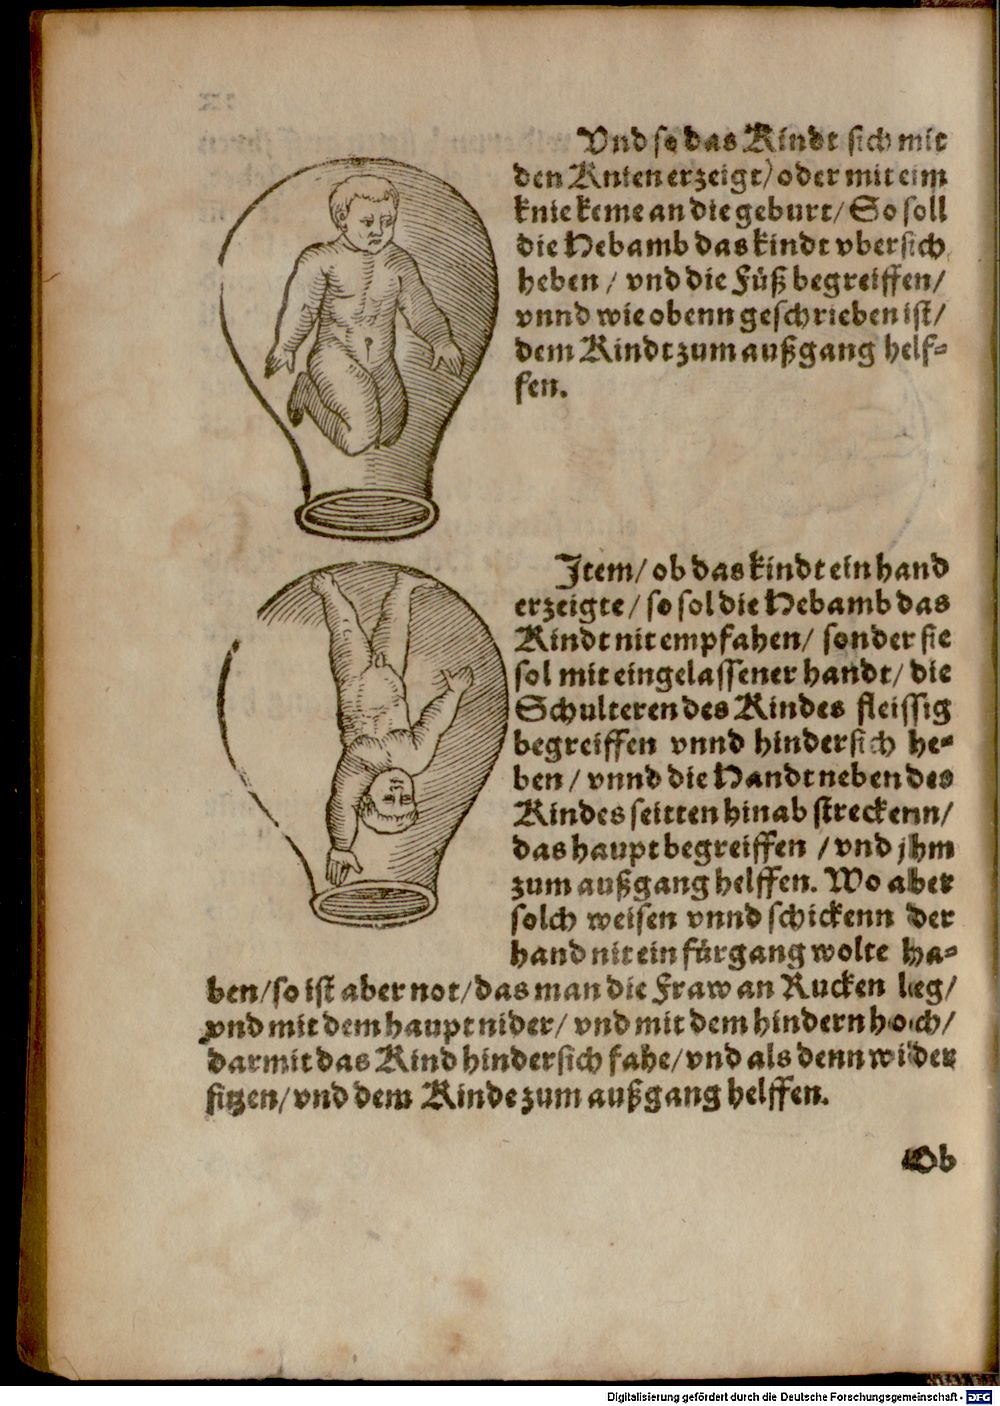 Vnd so das Kindt sich mit
den Knien erzeigt/ oder mit eim
knie keme an die geburt/ So soll
die Hebamb das kindt vbersich
heben / vnd die Füß begreiffen/
vnnd wie obenn geschrieben ist/
dem Kindt zum außgang helf-
fen.
Item/ ob das kindt ein hand
erzeigte/ so sol die Hebamb das
Kindt nit empfahen/ sonder sie
sol mit eingelassener handt/ die
Schulteren des Kindes fleissig
begreiffen vnnd hindersich he-
ben/ vnnd die Handt neben des
Kindes seitten hinab streckenn/
das haupt begreiffen /vnd jhm
zum außgang helffen. Wo aber
solch weisen vnnd schickenn der
hand nit ein fürgang wolte ha-
ben/ so ist aber not/ das man die Fraw an Rucken lieg/
vnd mit dem haupt nider/ vnd mit dem hindern hoch/
darmit das Kind hindersich fahe/ vnd als denn wider
sitzen/ vnd dem Kinde zum außgang helffen.
Ob
Digitalisierung gefördert durch die Deutsche Forschungsgemeinschaft - DFG